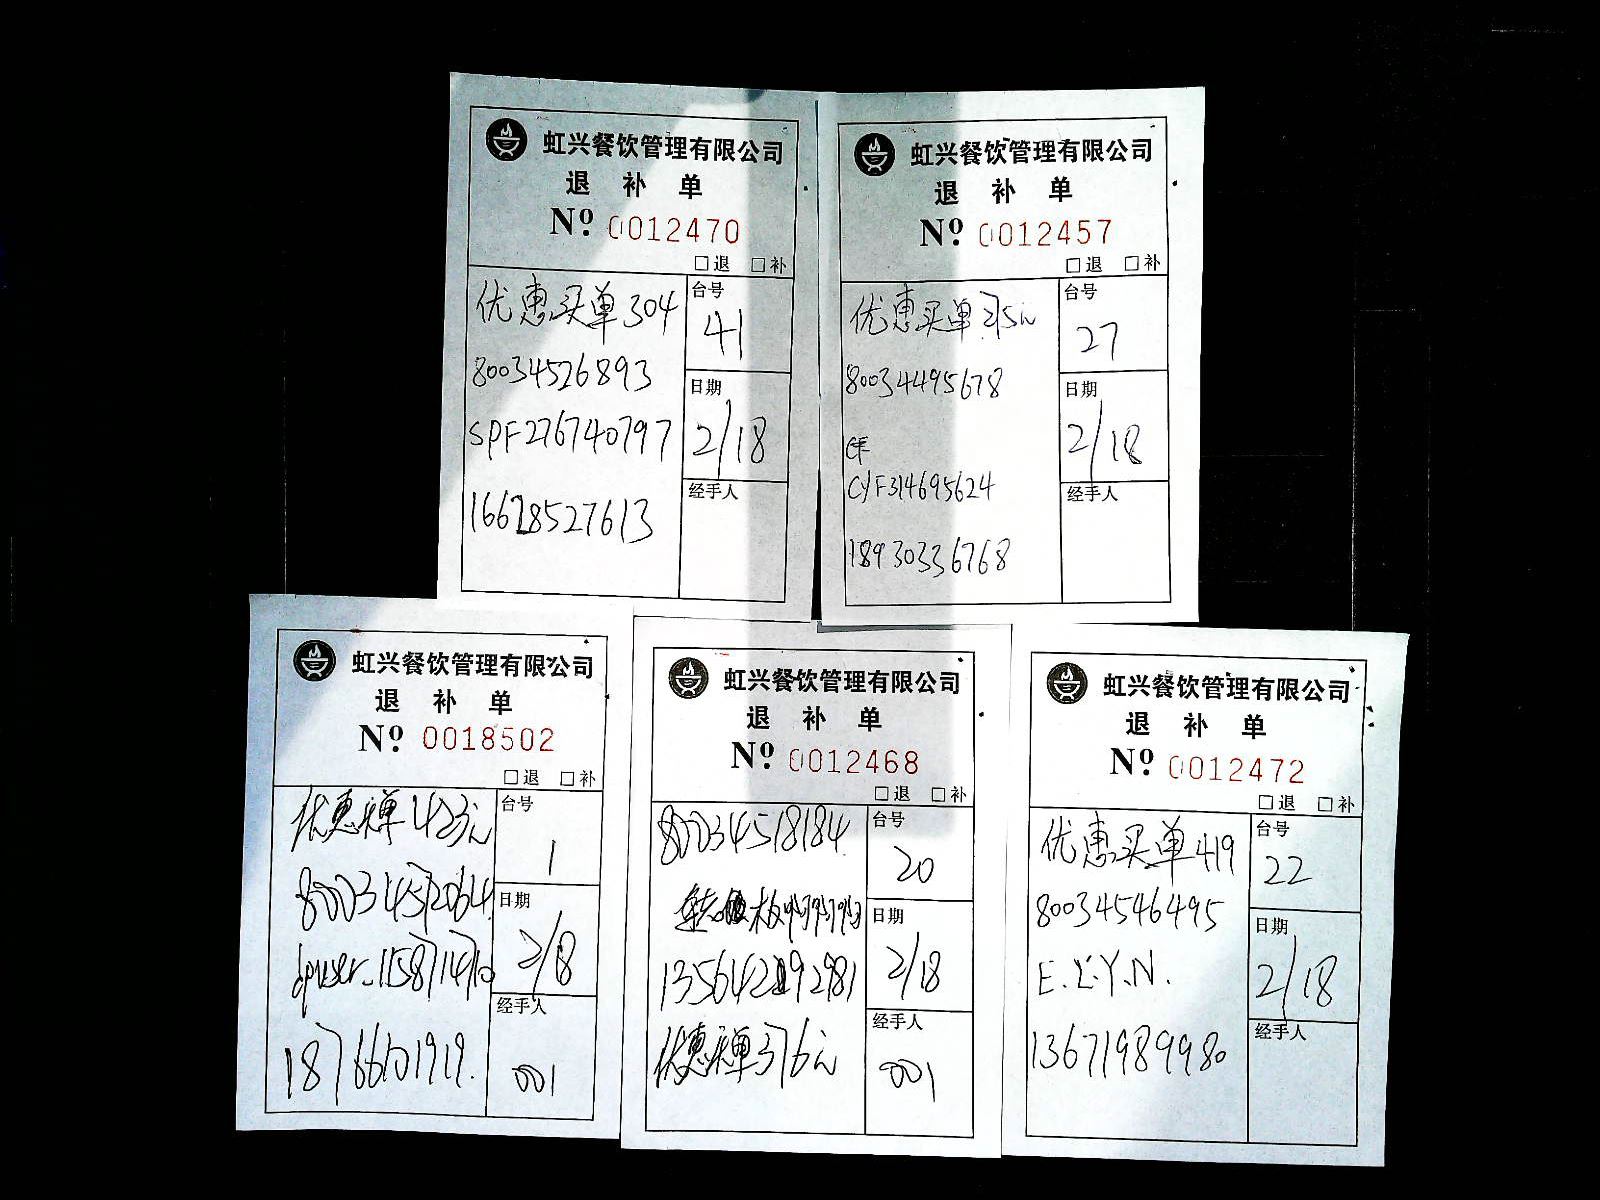 虹兴餐饮管理有限公司
退 补 单
Nº 0012470
□退 □补
优惠买单304
台号
41
80034526893
日期
2/18
SPF276740797
经手人
16628527613
虹兴餐饮管理有限公司
退 补 单
Nº 0012457
□退 □补
优惠买单
台号
27
80034495678
日期
2/18
CYF314695624
经手人
18930336768
虹兴餐饮管理有限公司
退 补 单
Nº 0018502
□退 □补
优惠买单423元
台号
1
80034572064
日期
2/8
dpuser_
经手人
001
虹兴餐饮管理有限公司
退 补 单
Nº 0012468
□退 □补
80034518184
台号
20
日期
2/18
经手人
优惠买单376元
001
虹兴餐饮管理有限公司
退 补 单
Nº 0012472
□退 □补
优惠买单419
台号
22
80034546495
日期
2/18
E.L.Y.N.
经手人
13671989980